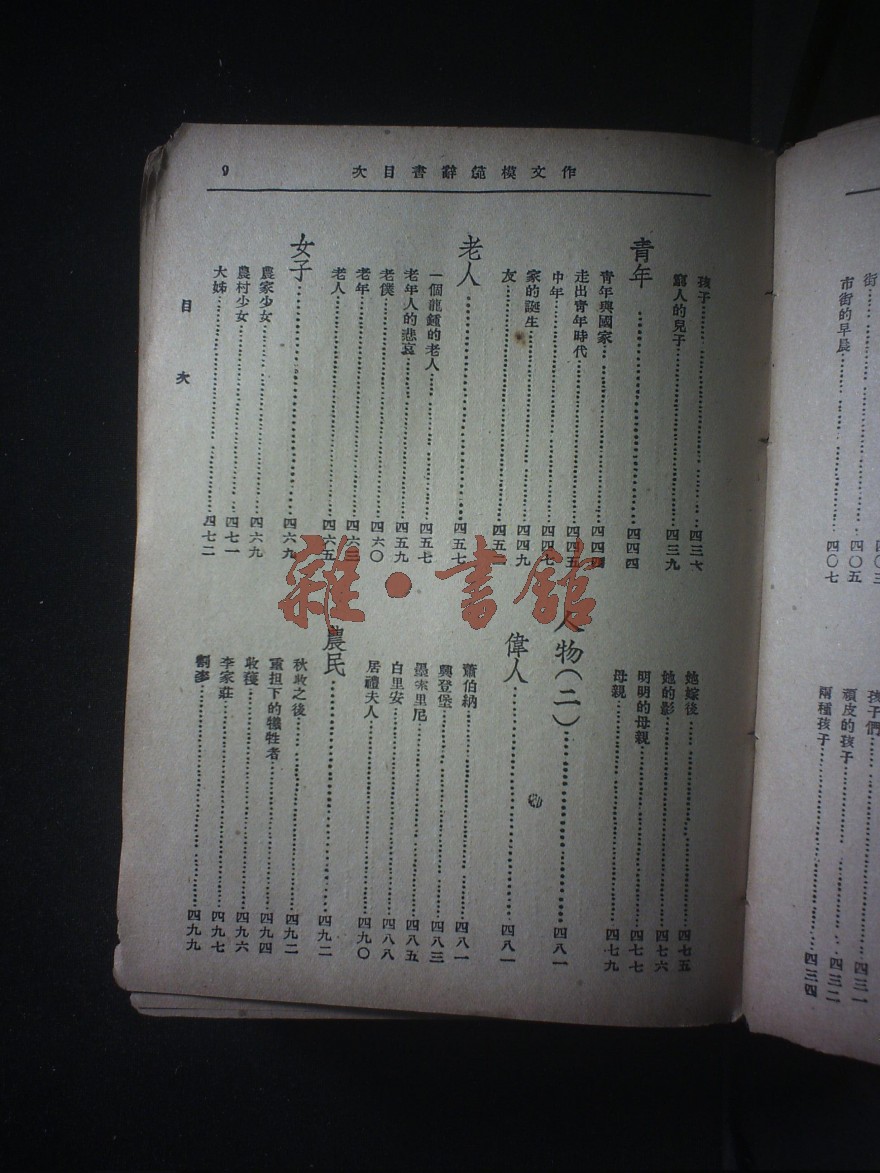 作文模範辭書目次
9
孩子
窮人的兒子 四三九
青年 四四四
青年與國家 四四四
走出青年時代 四四五
中年 四四七
家的誕生 四四九
友
老人 四五七
一個龍鍾的老人 四五七
老年人的悲哀 四五九
老僕 四六〇
老年 四六三
老人 四六五
女子 四六九
農家少女 四六九
農村少女 四七一
大姊 四七二
她嫁後 四七五
她的影 四七六
明明的母親 四七七
母親 四七九
人物(二) 四八一
偉人 四八一
蕭伯納 四八一
興登堡 四八三
墨索里尼 四八五
白里安 四八八
居禮夫人 四九〇
農民 四九二
秋收之後 四九二
重担下的犧牲者 四九四
收穫 四九六
李家莊 四九七
割麥 四九九
目次
街 四〇三
市街的早晨 四〇五
四〇七
孩子們 四三一
頑皮的孩子 四三二
兩種孩子 四三四
雜·書館